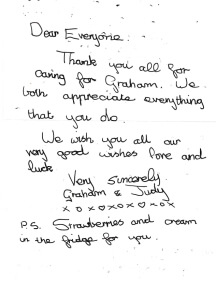 Dear Everyone.
Thank you all for
caring for Graham. We
both appreciate everything
that you do.
We wish you all our
very good wishes fore and
luck
Very Sincerely
Graham & Judy
x o x o x o x o x o x
P.S. Strawberries and cream
in the fridge for you.